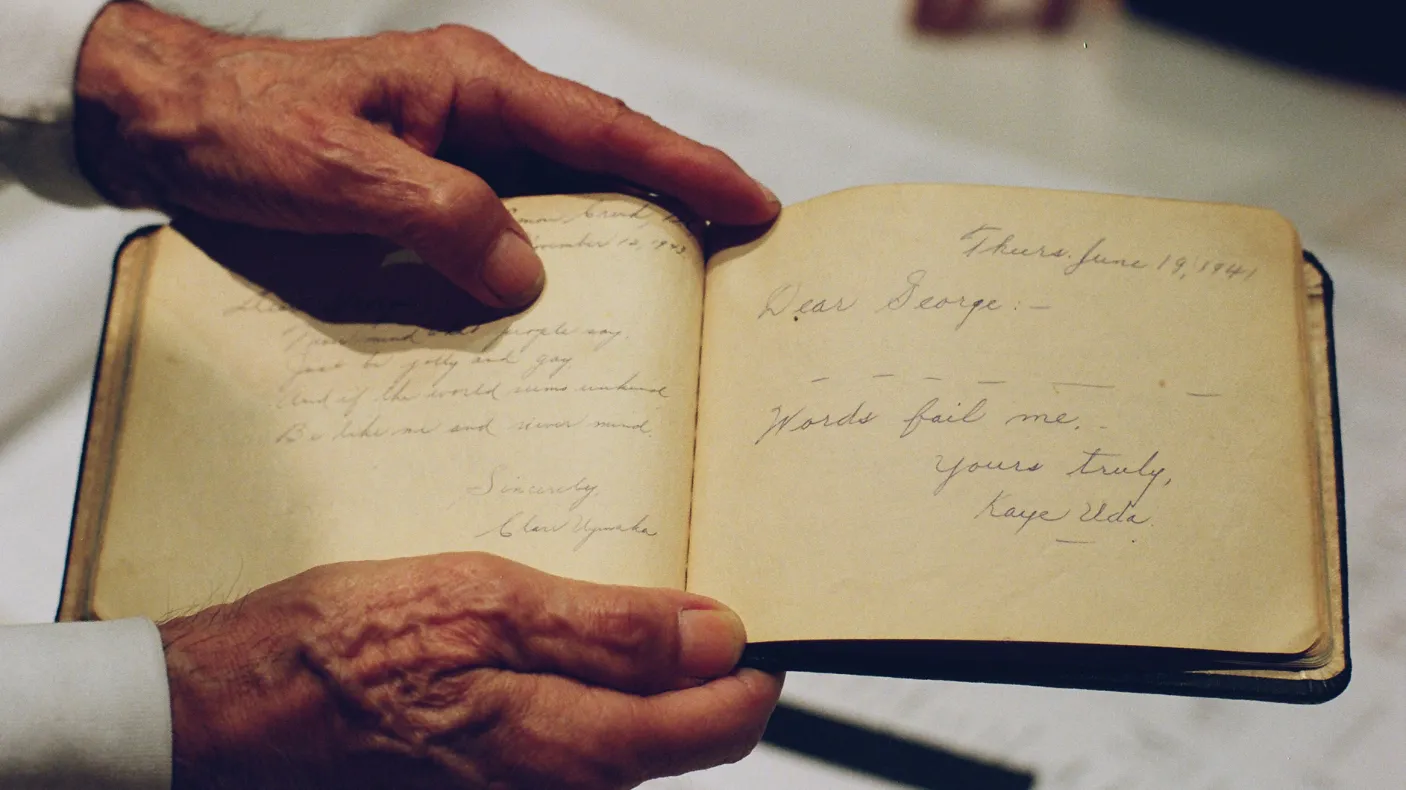 November 12, 1943
Never mind what people say.
Just be jolly and gay,
And if the world seems unkind
Be like me and never mind.
Sincerely,
Thurs. June 19, 1941
Dear George:-
Words fail me.
Yours truly,
Kaye Uda.